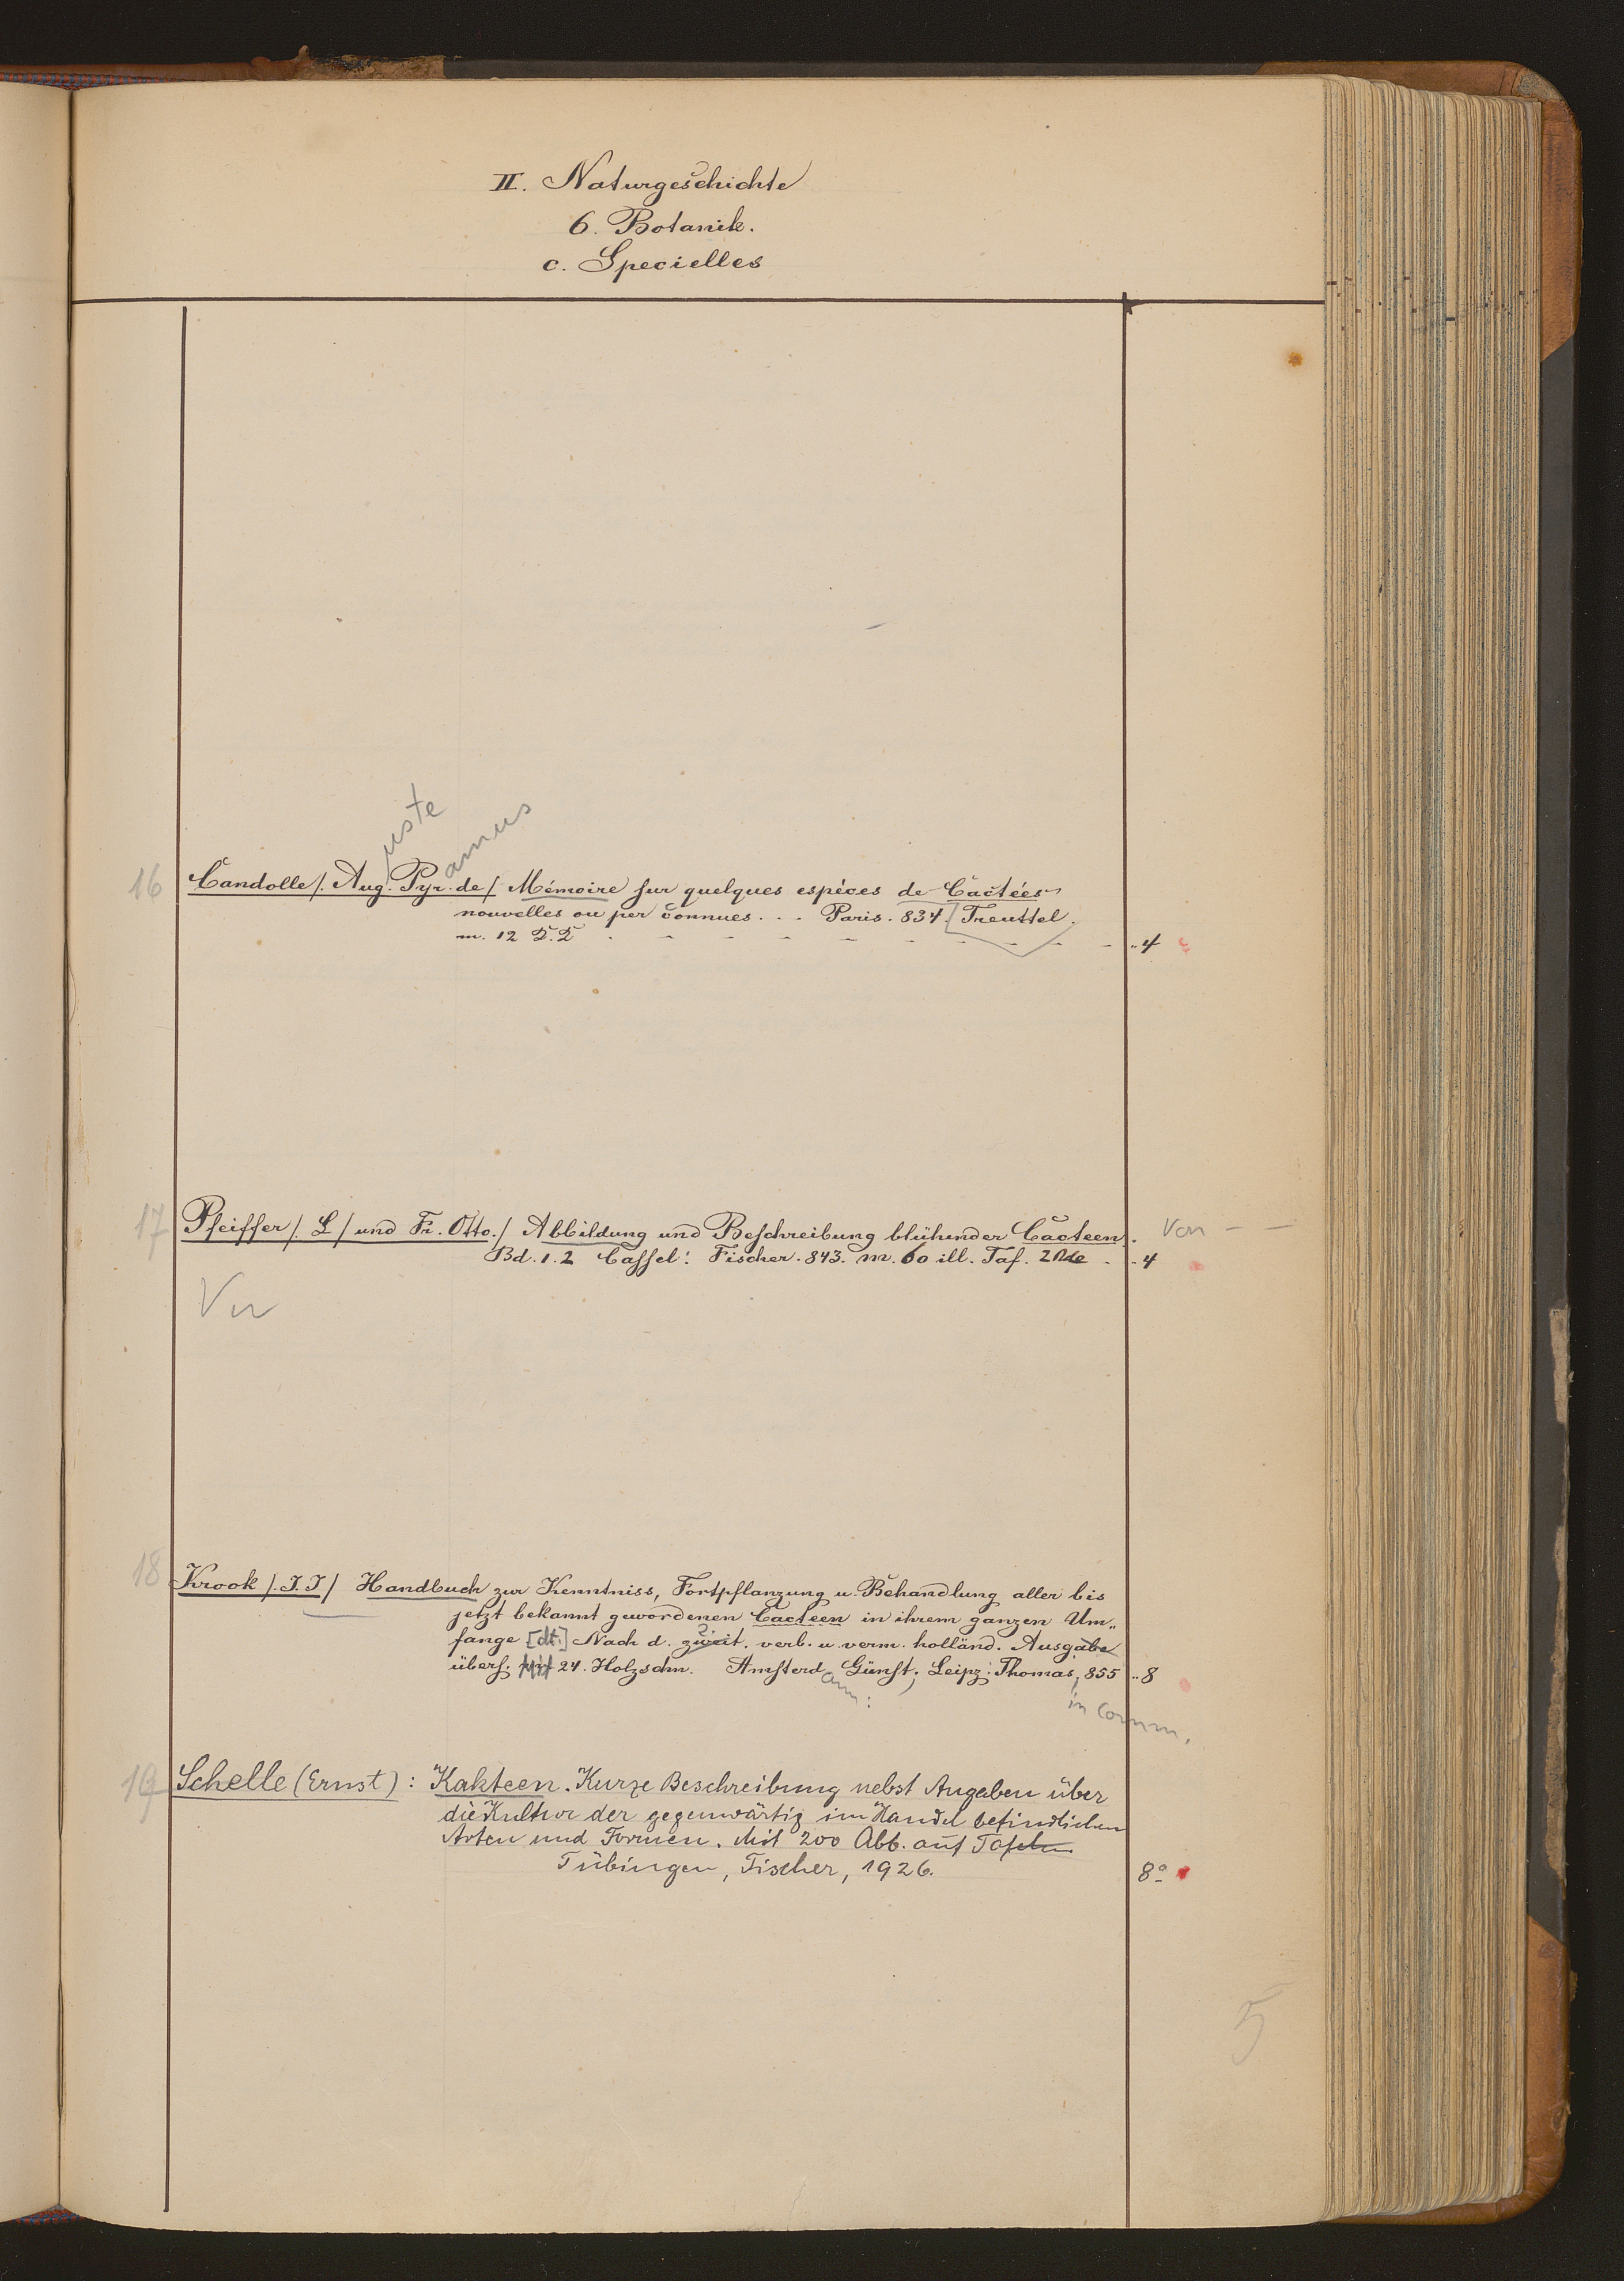 II. Naturgeschichte
6. Botanik.
c. Specielles
uste
amus
16 Candolle /. Aug. Pyr. de / Mémoire sur quelques espèces de Cactées
nouvelles ou per connues . . . Paris. 834. [Treuttel.
m. 12 T. T. - - - - - - - - - ,, 4
17 Pfeiffer /. L / und Fr. Otto. / Abbildung und Beschreibung blühender Cacteen.
Bd. 1. 2 Cassel: Fischer. 843. m. 60 ill. Taf. 2 Bde . . 4
18 Krook /. J. J / Handbuch zur Kenntniss, Fortpflanzung u. Behandlung aller bis
jetzt bekannt gewordenen Cacteen in ihrem ganzen Um„
fange [dt.] Nach d. zweit. verb. u. verm. holländ. Ausgabe
2.
übers. mit 24. Holzschn. Amsterd Günst; Leipz: Thomas, 855 ,, 8
am:
in Comm.
19 Schelle (Ernst): Kakteen. Kurze Beschreibung nebst Angaben über
die Kultur der gegenwärtig im Handel befindlichen
Arten und Formen. Mit 200 Abb. auf Tafeln
Tübingen, Fischer, 1926. 8°
5